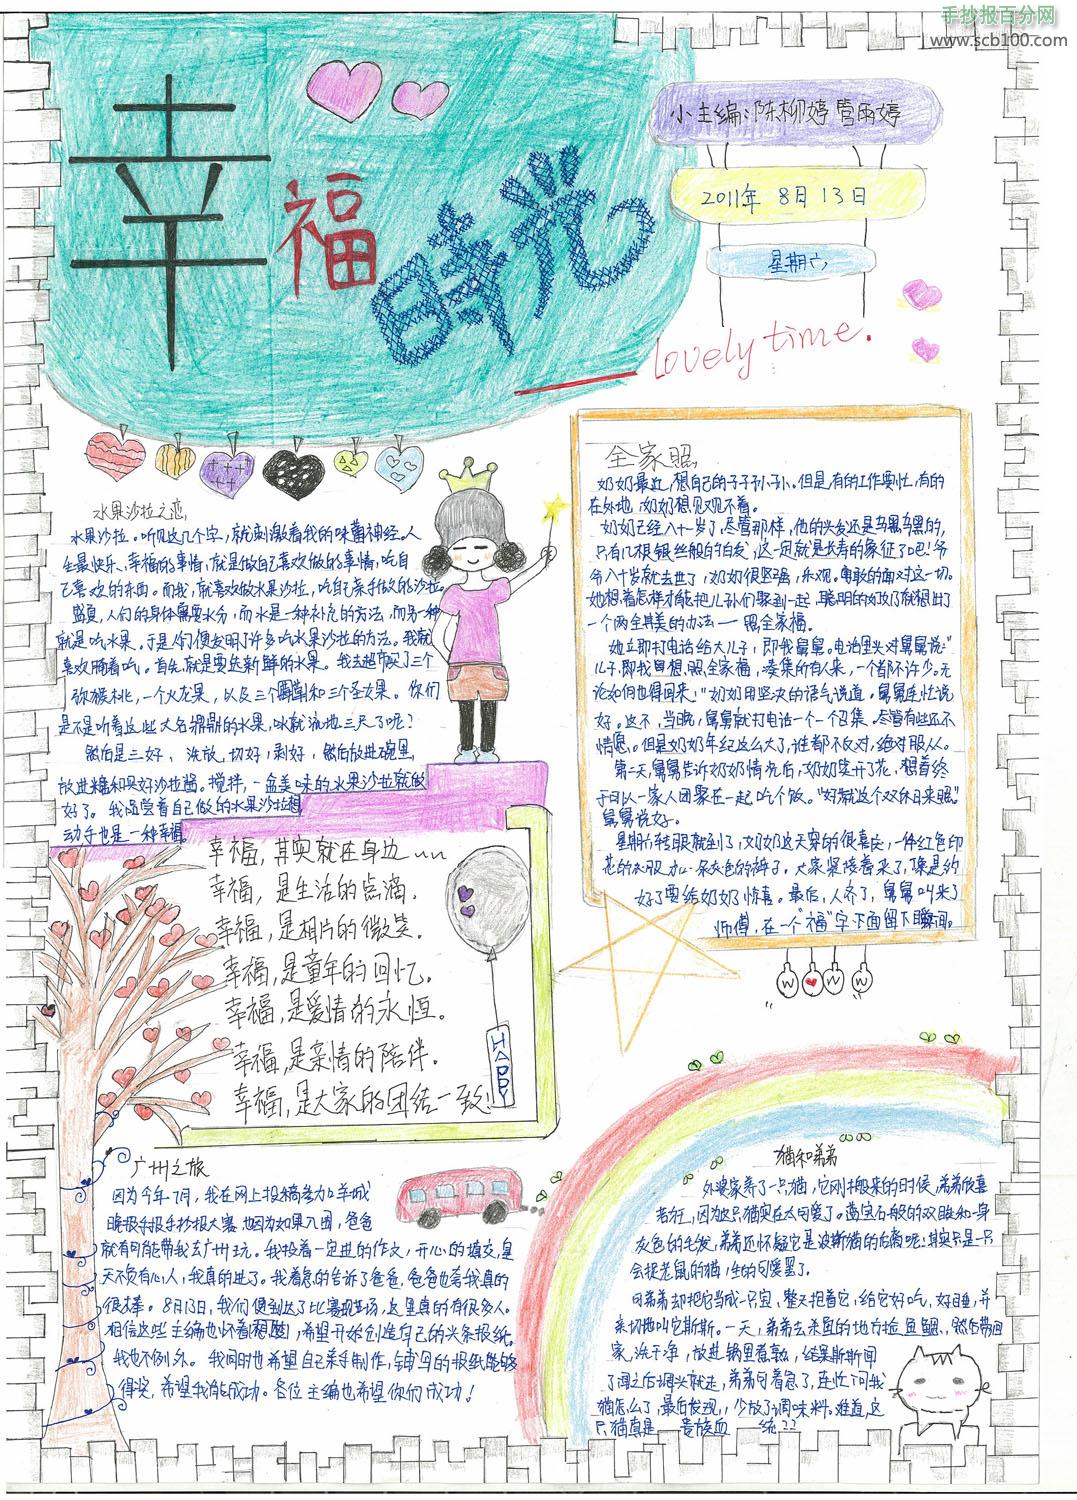 手抄报百分网
www.scb100.com
幸福時光
小主编:陈柳婷 管雨婷
2011年 8月 13日
星期六
lovely time.
水果沙拉之恋
水果沙拉。听见这几个字,就刺激着我的味蕾神经。人
生最快乐、幸福的事情,就是做自己喜欢做的事情,吃自
己喜欢的东西。而我,就喜欢做水果沙拉,吃自己亲手做的沙拉。
盛夏,人们的身体需要水分,而水是一种补充的方法,而另一种
就是吃水果。于是人们便发明了许多吃水果沙拉的方法。我就
喜欢腌着吃。首先,就是要选新鲜的水果。我去超市买了三个
弥猴桃,一个火龙果,以及三个和三个圣女果。你们
是不是听着这些大名鼎鼎的水果,口水就流地三尺了呢?
然后是三好、洗放,切好,剥好,然后放进碗里,
放进糖和买好沙拉酱。搅拌,一盆美味的水果沙拉就做
好了。我品尝着自己做的水果沙拉想
动手也是一种幸福。
全家照
奶奶最近,想自己的子子孙孙。但是,有的工作要忙,有的
在外地,奶奶想见见不着。
奶奶已经八十岁了,尽管那样,他的头发还是乌黑乌黑的,
只有几根银丝般的白发,这一定就是长寿的象征了吧!爷
爷八十岁就去世了,奶奶很坚强,乐观。勇敢的面对这一切。
她想着怎样才能把儿孙们聚到一起,聪明的奶奶就想出了
一个两全其美的办法——照全家福。
她立即打电话给大儿子,即我舅舅。电话里头对舅舅说:"
儿子,即我想照全家福,凑集所有人来,一个都不许少。无
论如何也得回来!"奶奶用坚决的语气说道。舅舅连忙说
好。这不,当晚,舅舅就打电话一个一个召集。尽管有些还不
情愿。但是奶奶年纪这么大了,谁都不反对,绝对服从。
第二天,舅舅告诉奶奶情况后,奶奶笑开了花,想着终
于可以一家人团聚在一起吃个饭。"好就这个双休日来照。"
舅舅说好。
星期六转眼就到了,奶奶这天穿的很喜庆,一件红色印
花的衣服加一条灰色的裤子。大家紧接着来了,像是约
好了要给奶奶惊喜。最后,人齐了,舅舅叫来了
师傅,在一个"福"字下面留下瞬间。
W W W
幸福,其实就在身边~~
幸福,是生活的点滴。
幸福,是相片的微笑。
幸福,是童年的回忆。
幸福,是爱情的永恒。
幸福,是亲情的陪伴。
幸福,是大家的团结一致!
HAPPY
广州之旅
因为今年7月,我在网上投稿参加羊城
晚报手报手抄报大赛。也因为如果入围,爸爸
就有可能带我去广州玩。我投着一定进的作文,开心的填交,皇
天不负有心人,我真的进了。我着急的告诉了爸爸,爸爸也夸我真的
很棒。8月13日,我们便到达了比赛现场,这里真的有很多人。
相信这些主编也怀着想,希望开始创造自己的头条报纸,
我也不例外。我同时也希望自己亲手制作,的报纸能够
得奖,希望我能成功。各位主编也希望你们成功!
猫和弟弟
外婆家养了一只猫,它刚搬来的时候,弟弟欣喜
若狂,因为这只猫实在太可爱了。蓝宝石般的双眼和一身
灰色的毛发,弟弟还怀疑它是波斯猫的后裔呢!其实只是一只
会捉老鼠的猫,生的可爱罢了。
可弟弟却把它当成一只宝,整天抱着它,给它好吃,好睡,并
亲切地叫它斯斯。一天,弟弟去杀鱼的地方捡鱼鳃,然后带回
家,洗干净,放进锅里煮熟,结果斯斯闻
了闻之后掉头就走,弟弟可着急了,连忙问我
猫怎么了,最后发现,少放了调味料。难道,这
只猫真是 贵族血 统??